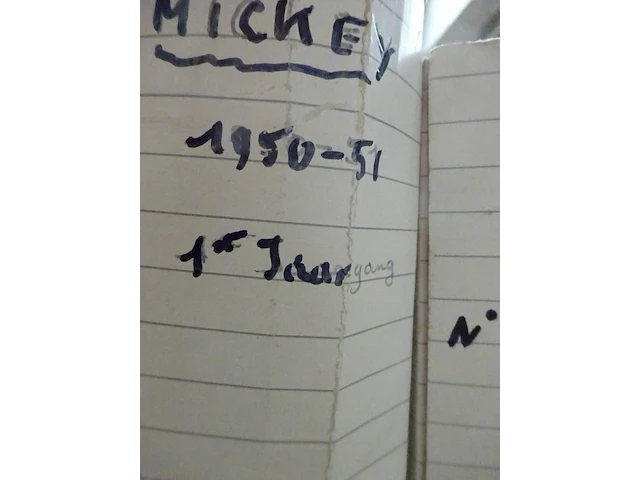 MICKEY
1950-51
1ste Jaargang
N°